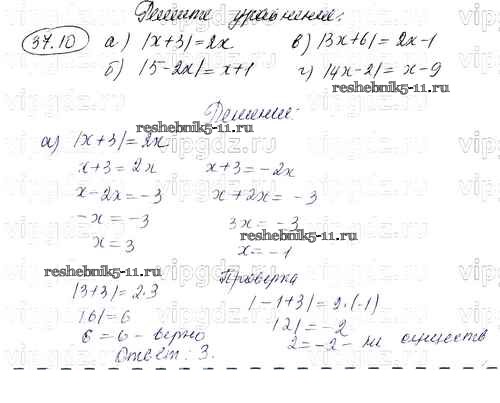 Решите уравнение:
37.10 а) |x+3|=2x в) |3x+6|=2x-1
б) |5-2x|=x+1 г) |4x-2|=x-9
reshebnik5-11.ru
Решение:
reshebnik5-11.ru
а) |x+3|=2x
x+3=2x x+3=-2x
x-2x=-3 x+2x=-3
-x=-3 3x=-3
reshebnik5-11.ru
x=3 x=-1
reshebnik5-11.ru
Проверка
|3+3|=2·3 |-1+3|=2·(-1)
|6|=6 |2|=-2
6=6 - верно 2=-2 - не
Ответ: 3.